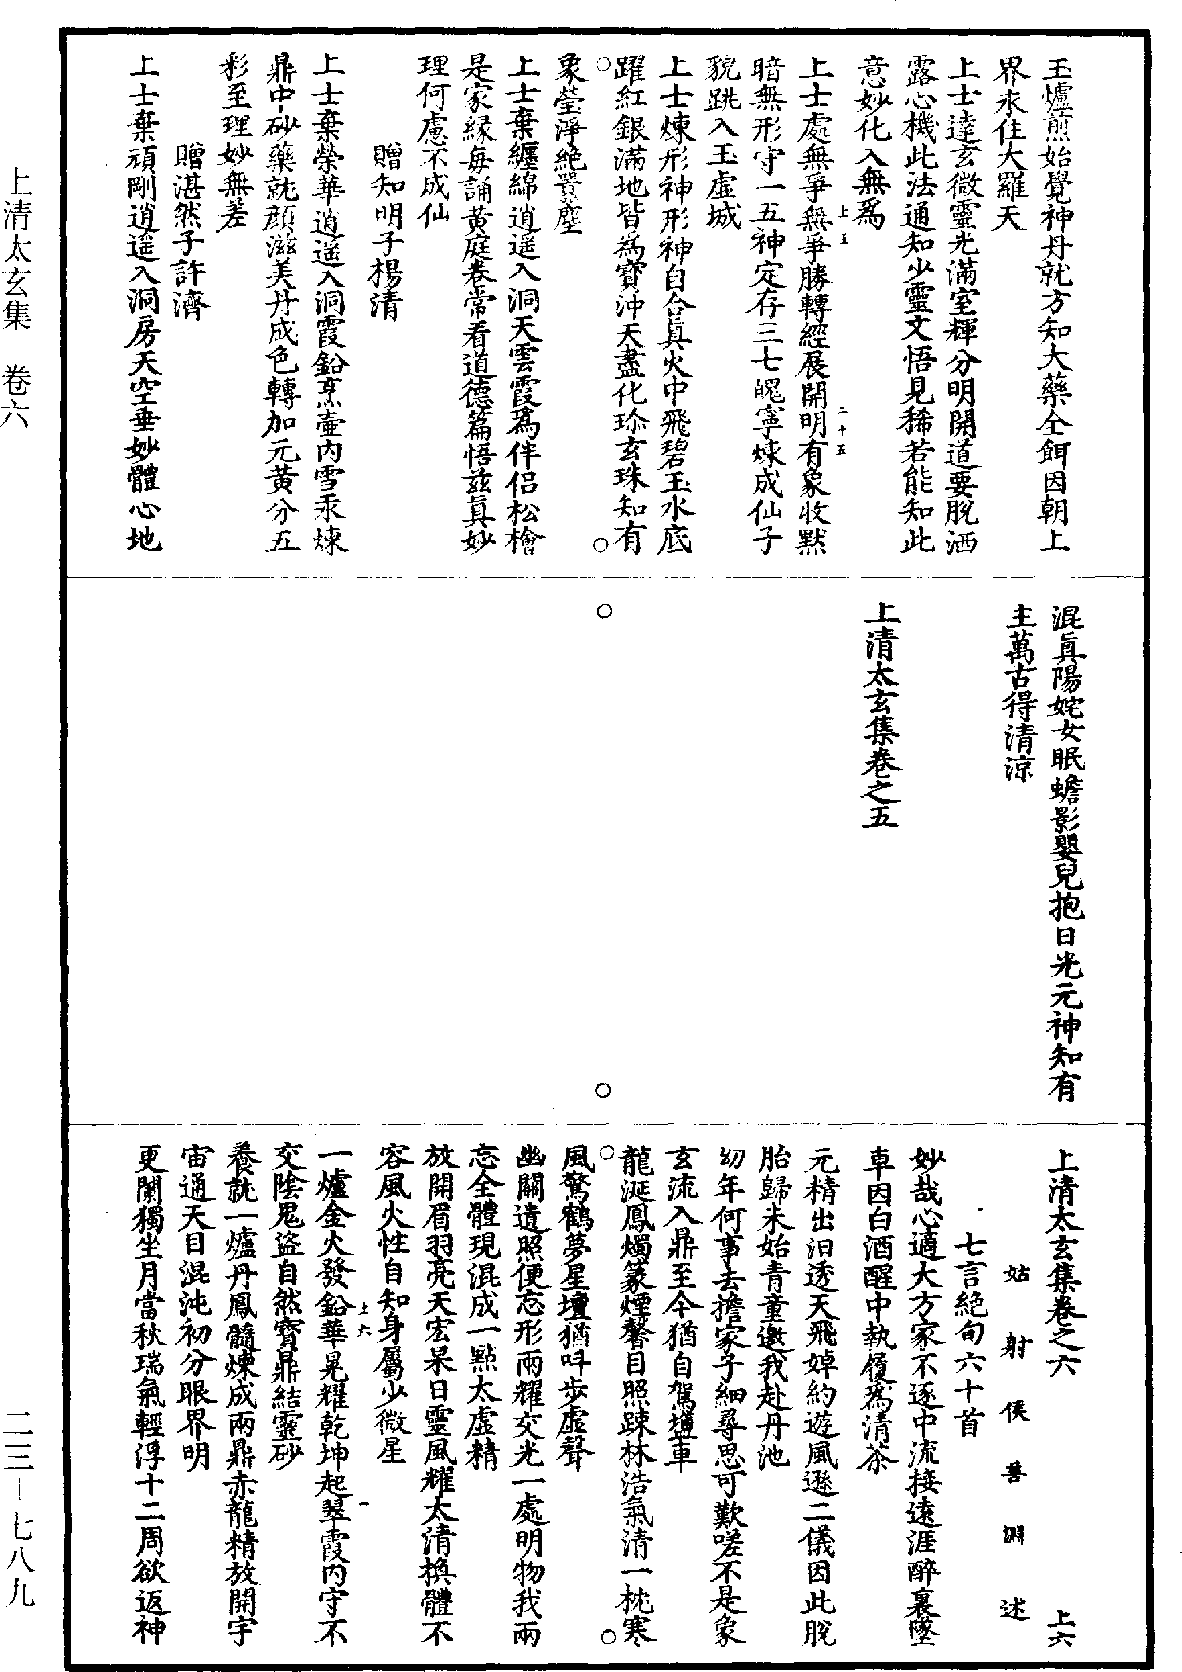 玉爐煎始覺神丹就方知大藥全餌因朝上
界永住大羅天
上士達玄微靈光滿室輝分明開道要脫洒
露心機此法通知少靈文悟見稀若能知此
意妙化入無爲
上五
二十五
上士處無爭無爭勝轉經展開明有象收默
暗無形守一五神定存三七魄寧煉成仙子
貌跳入玉虛城
上士煉形神形神自合眞火中飛碧玉水底
躍紅銀滿地皆爲寶沖天盡化珎玄珠知有
象瑩淨絶囂塵
上士棄纏綿逍遥入洞天雲霞爲伴侣松檜
是家縁每誦黃庭卷常看道德篇悟兹眞妙
理何慮不成仙
贈知明子楊清
上士棄榮華逍遥入洞霞鉛烹壷内雪汞煉
鼎中砂藥就顔滋美丹成色轉加元黃分五
彩至理妙無差
贈湛然子許濟
上士棄頑剛逍遥入洞房天空垂妙體心地
混眞陽姹女眠蟾影嬰兒抱日光元神知有
主萬古得清涼
上清太玄集卷之五
上清太玄集卷之六
上六
姑射侯善淵述
七言絶句六十首
妙哉心適大方家不逐中流接遠涯醉裏墜
車因白酒醒中執履爲清茶
元精出汩透天飛婥約遊風遜二儀因此脫
胎歸未始青童邀我赴丹池
幼年何事去擔家子細尋思可歎嗟不是象
玄流入鼎至今猶自駕壇車
龍涎鳳燭篆煙馨目照踈林浩氣清一枕寒
風驚鶴夢星壇猶呌歩虛聲
幽關遺照便忘形兩耀交光一處明物我兩
忘全體現混成一點太虛精
放開眉羽亮天宏杲日靈風耀太清換體不
容風火性自知身屬少微星
上六
一
一爐金火發鉛華晃耀乾坤起翠霞内守不
交陰鬼盗自然寶鼎結靈砂
養就一爐丹鳳髓煉成兩鼎赤龍精放開宇
宙通天目混沌初分眼界明
更闌獨坐月當秋瑞氣輕浮十二周欲返神
上清太玄集 卷六
二三－七八九